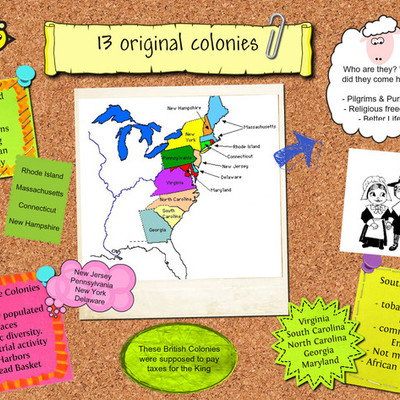 13 original colonies
Who are they?
did they come
- Pilgrims &
- Religious
- Better
Rhode Island
Massachusetts
Connecticut
New Hampshire
New Hampshire
Massachusetts
New York
Rhode Island
Connecticut
Pennsylvania
New Jersey
Delaware
Virginia
Maryland
North Carolina
South Carolina
Georgia
New Jersey
Pennsylvania
New York
Delaware
Colonies
populated
diversity.
activity
Harbors
Basket
These British Colonies
were supposed to pay
taxes for the King
Virginia
South Carolina
North Carolina
Georgia
Maryland
-
-
- Not
- African